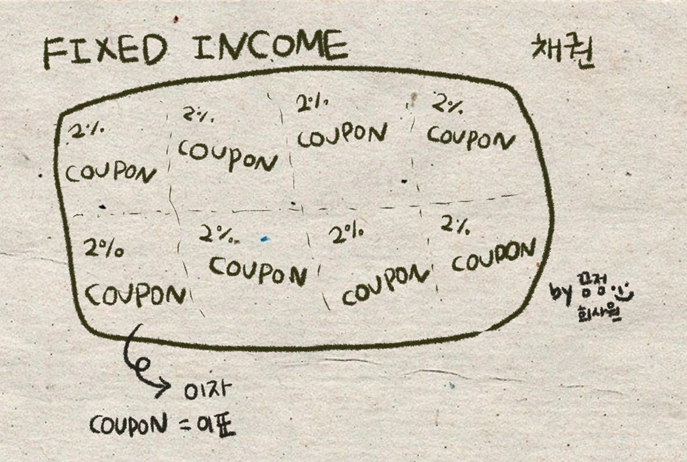 FIXED INCOME 채권
2% 2% 2% 2%
COUPON COUPON COUPON COUPON
2% 2% 2% 2%
COUPON COUPON COUPON COUPON
by 긍정
회사원
이자
COUPON = 이표